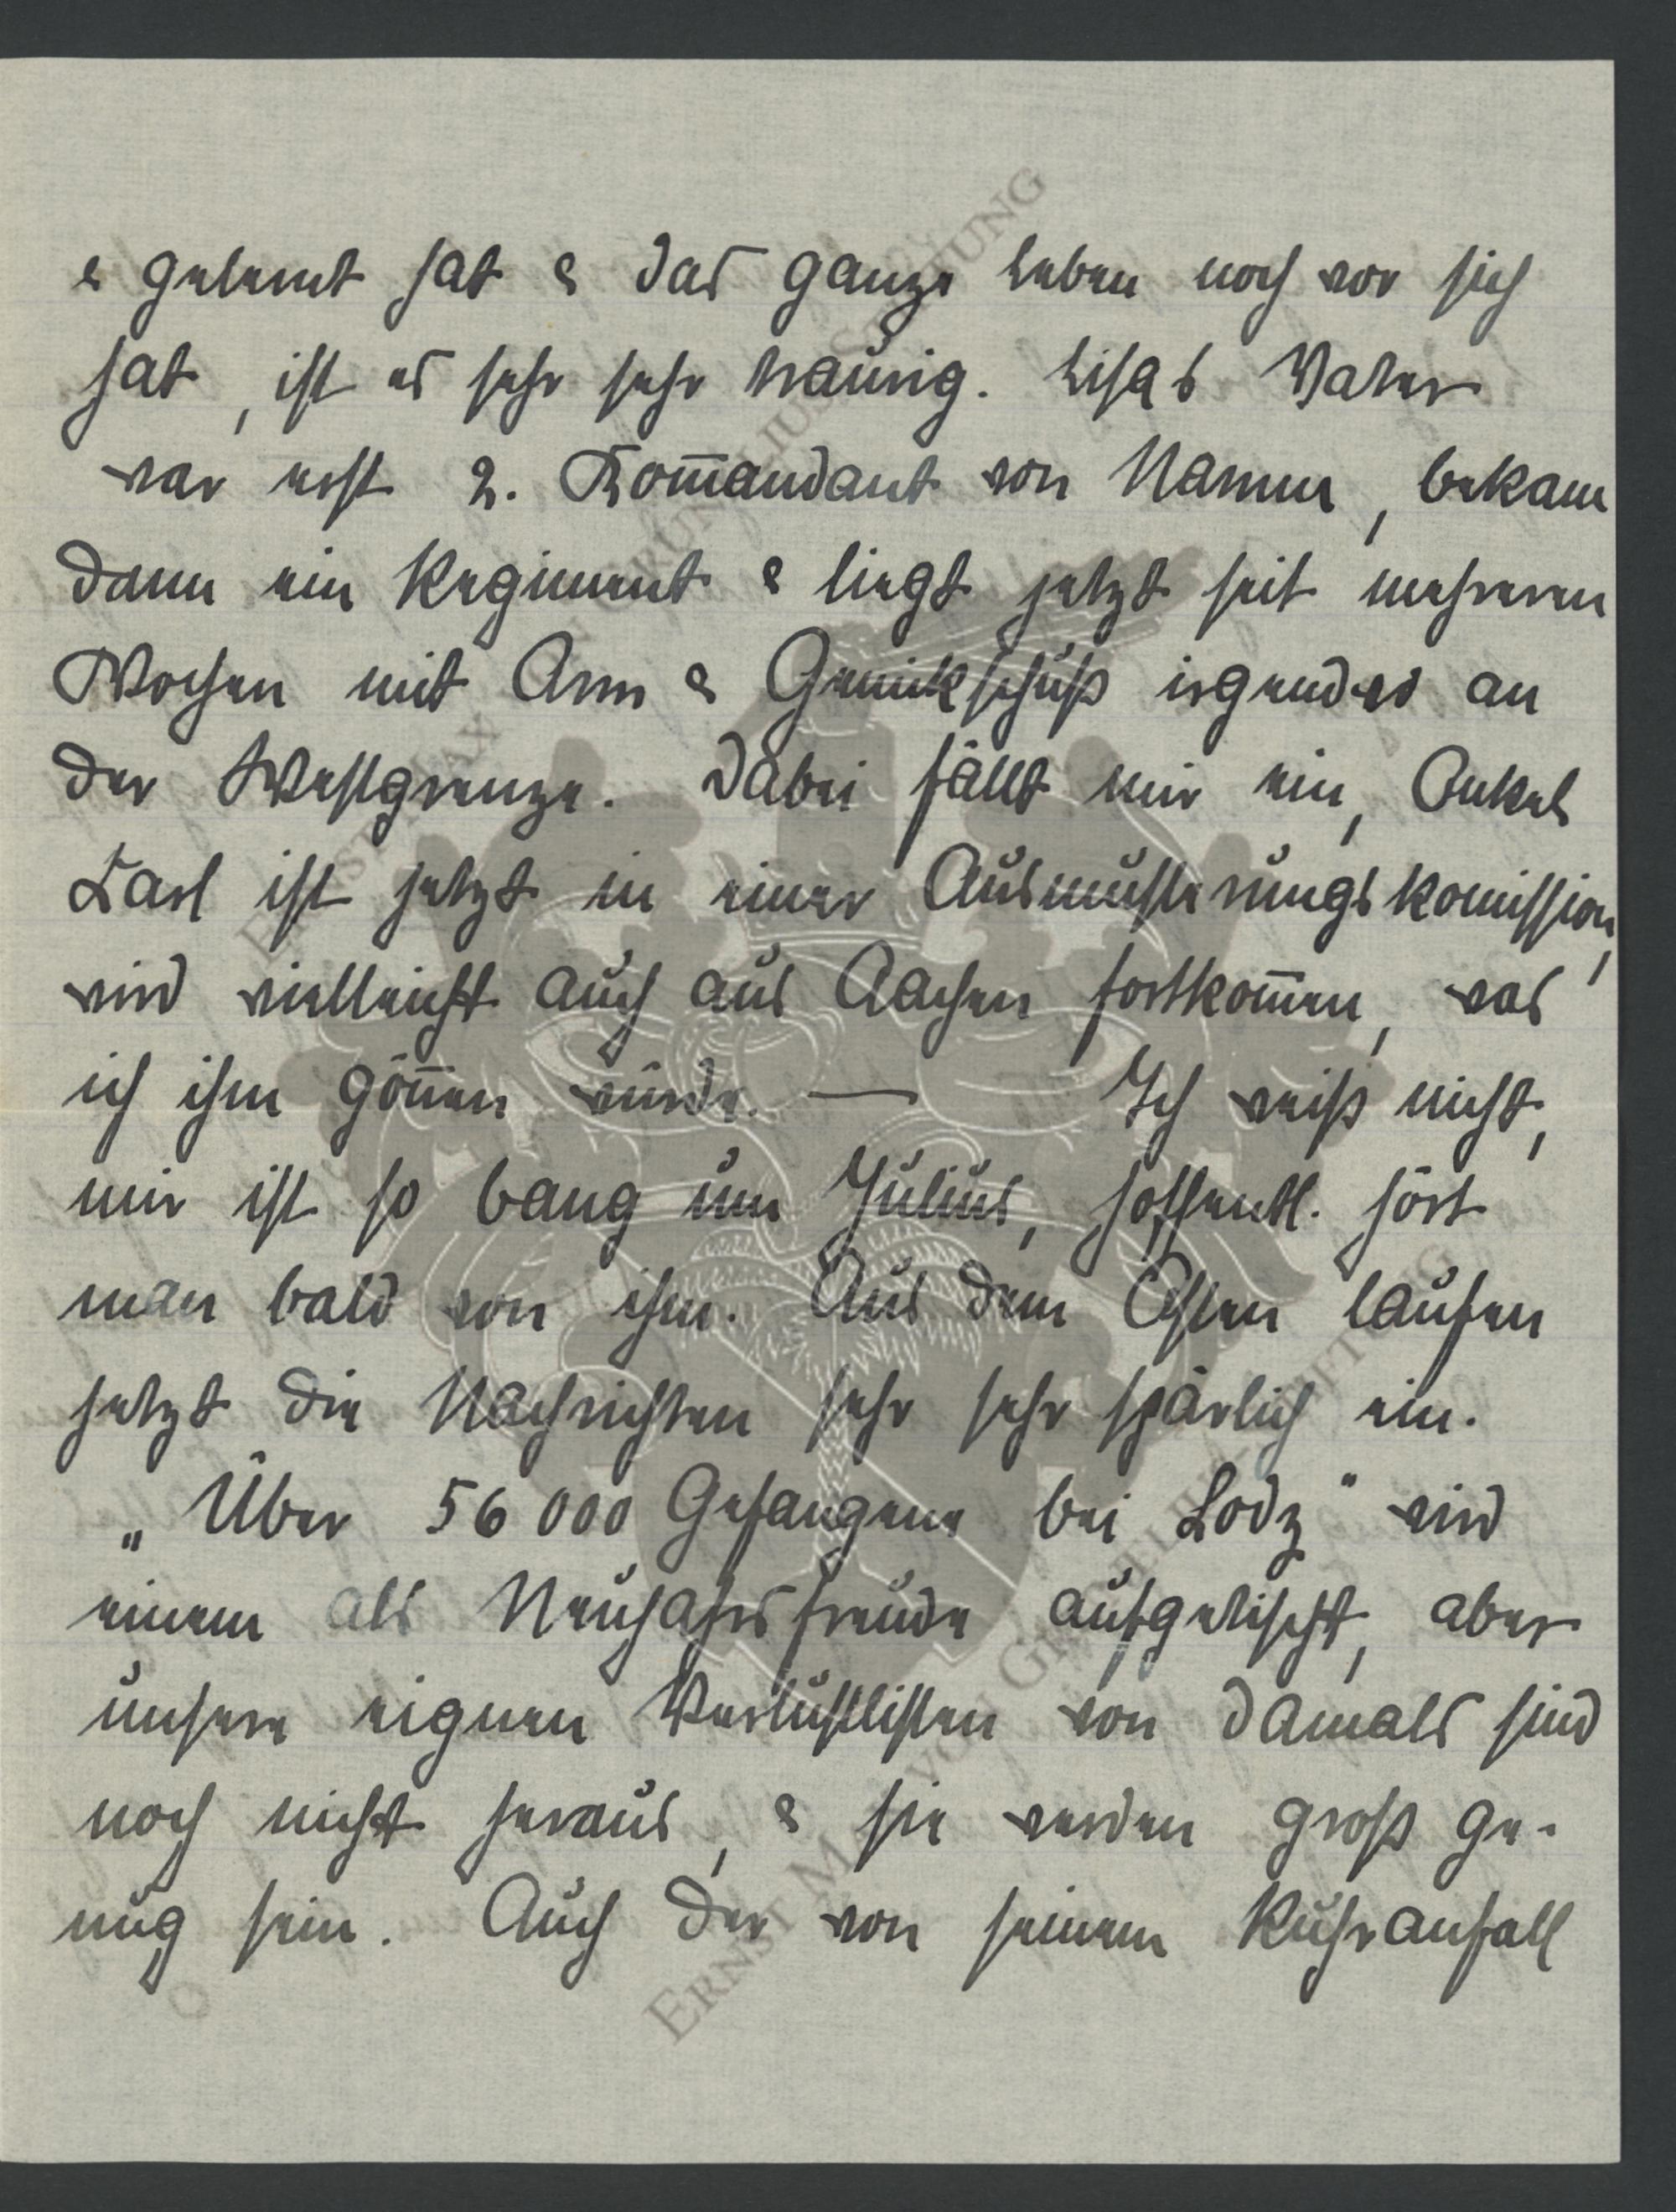 & gelernt hat & das ganze Leben noch vor sich
hat, ist es sehr sehr traurig. Lisas Vater
war erst 2. Kom̅andant von Namur, bekam
dann ein Regiment & liegt jetzt seit mehreren
Wochen mit Arm & Genickschuß irgendwo an
der Westgrenze. Dabei fällt mir ein, Onkel
Karl ist jetzt in einer Ausmusterungskomission,
wird vielleicht auch aus Aachen fortkom̅en, was
ich ihm gön̅en würde. — Ich weiß nicht,
mir ist so bang um Julius, hoffentl. hört
man bald von ihm. Aus dem Osten laufen
jetzt die Nachrichten sehr sehr spärlich ein.
„Über 56000 Gefangene bei Lodz" wird
einem als Neujahrsfreude aufgetischt, aber
unsere eignen Verlustlisten von damals sind
noch nicht heraus, & sie werden groß ge-
nug sein. Auch der von seinem Ruhranfall
ERNST MAX VON GRUNELIUS-STIFTUNG
ERNST MAX VON GRUNELIUS-STIFTUNG